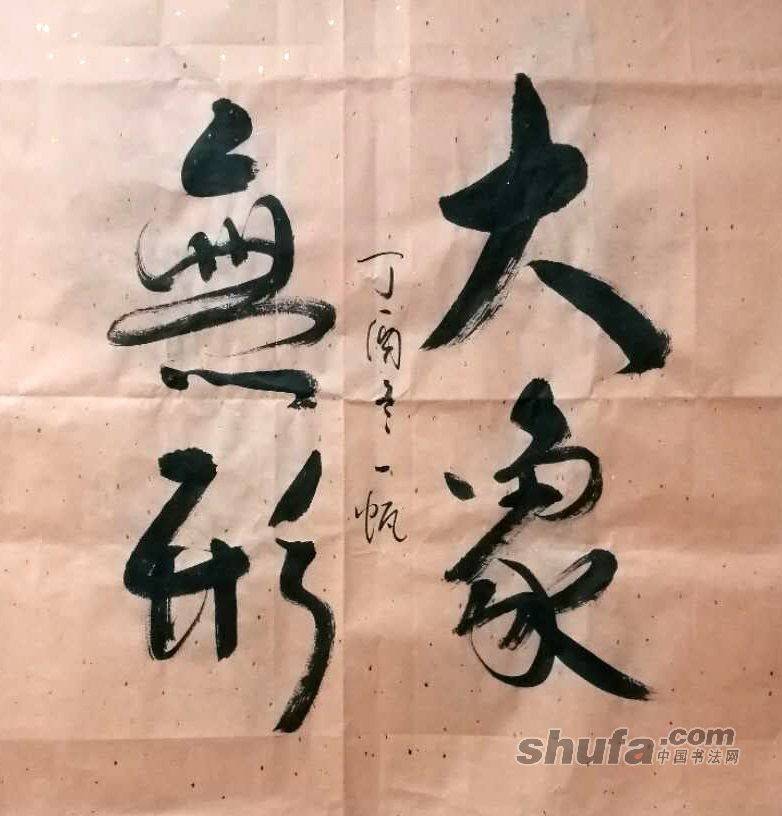 大象
丁酉冬一
無形
shufa.com
中国书法网